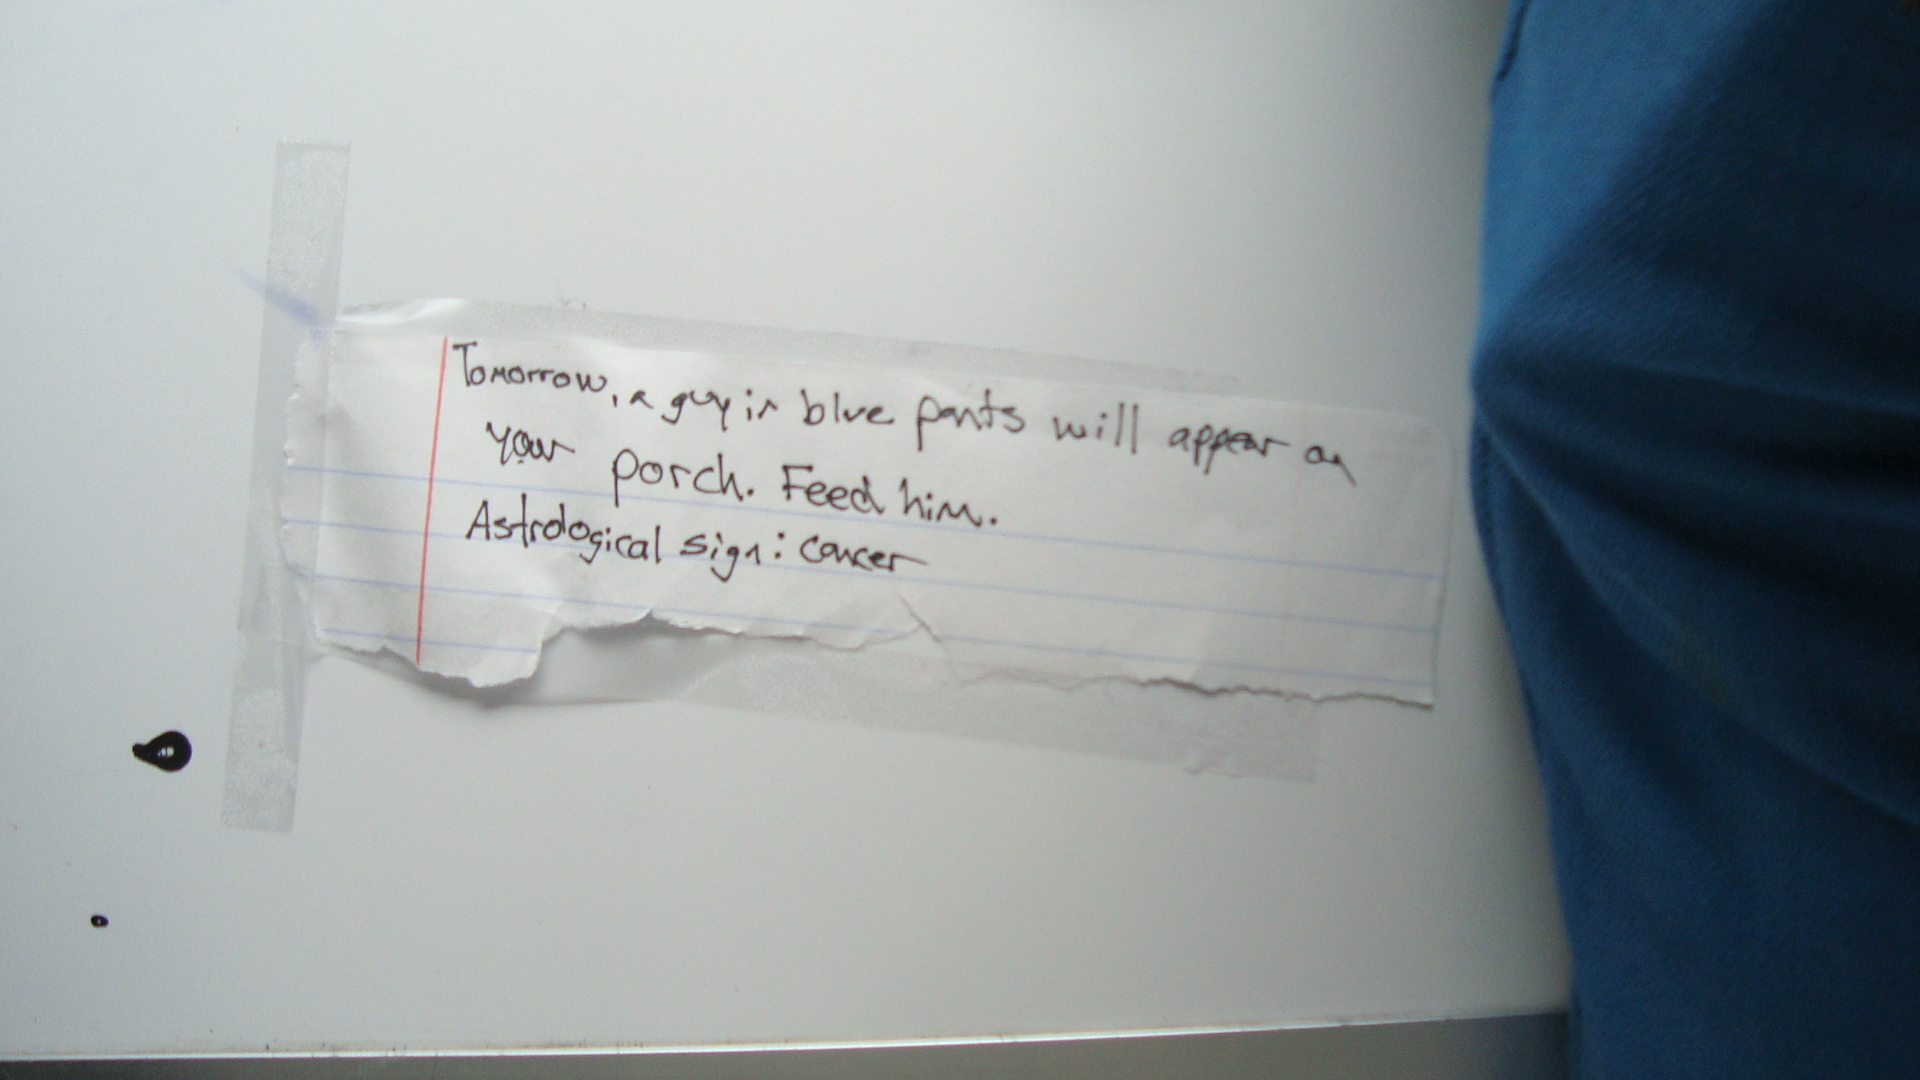 Tomorrow, a guy in blue pants will appear on
your porch. Feed him.
Astrological sign: cancer